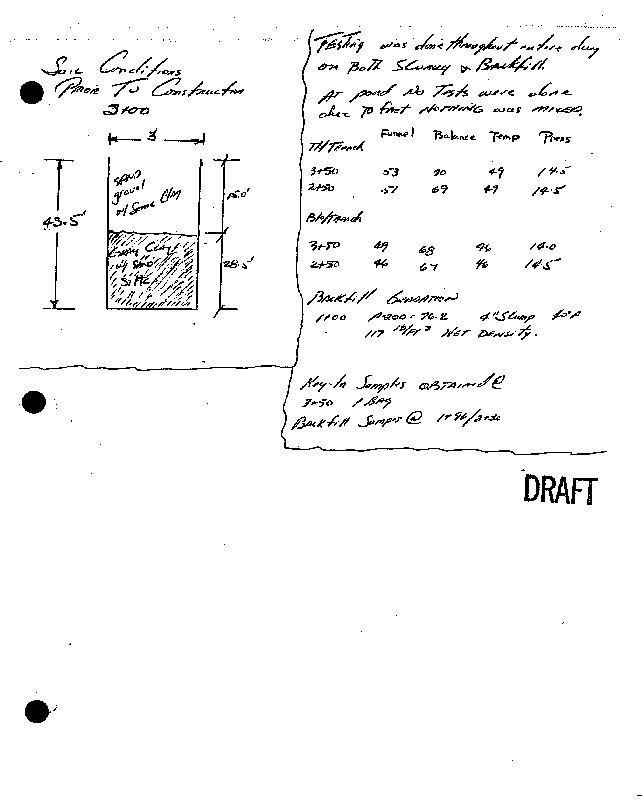 Soil Conditions
Prior To Construction
3+00
3'
43.5'
SAND
gravel
w/ Some
15.0'
Gray Clay
w/ Sand
Silt
28.5'
Testing was done throughout entire day
on Both Slurry & Backfill.
AT pond No Tests were done
due To fact NOTHING was MIXED.
Funnel Balance Temp Press
T/Trench
3+50 53 70 49 14.5
2+50 51 69 49 14.5
B/Trench
3+50 49 68 46 14.0
2+50 46 67 46 14.5
Backfill
1+00 P-200 = 76.2 4" Slump
117 lb/ft³ WET DENSITY.
Key-In Samples OBTAINED @
3+50 1 BAG
Backfill Samples @ 1+96
DRAFT